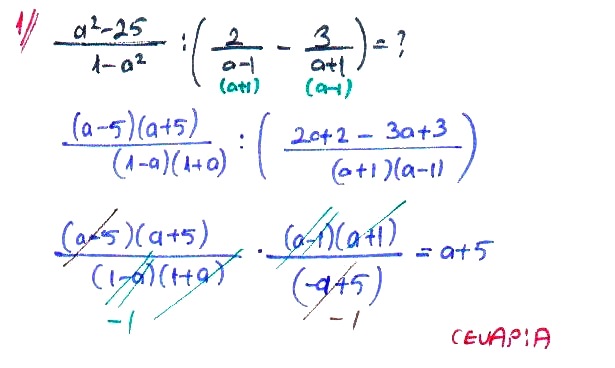 1// (a²-25)/(1-a²) : (2/(a-1) - 3/(a+1)) = ?
(a+1) (a-1)
((a-5)(a+5))/((1-a)(1+a)) : ((2a+2-3a+3)/((a+1)(a-1)))
((a-5)(a+5))/((1-a)(1+a)) · ((a-1)(a+1))/(-a+5) = a+5
-1 -1
CEVAP:A